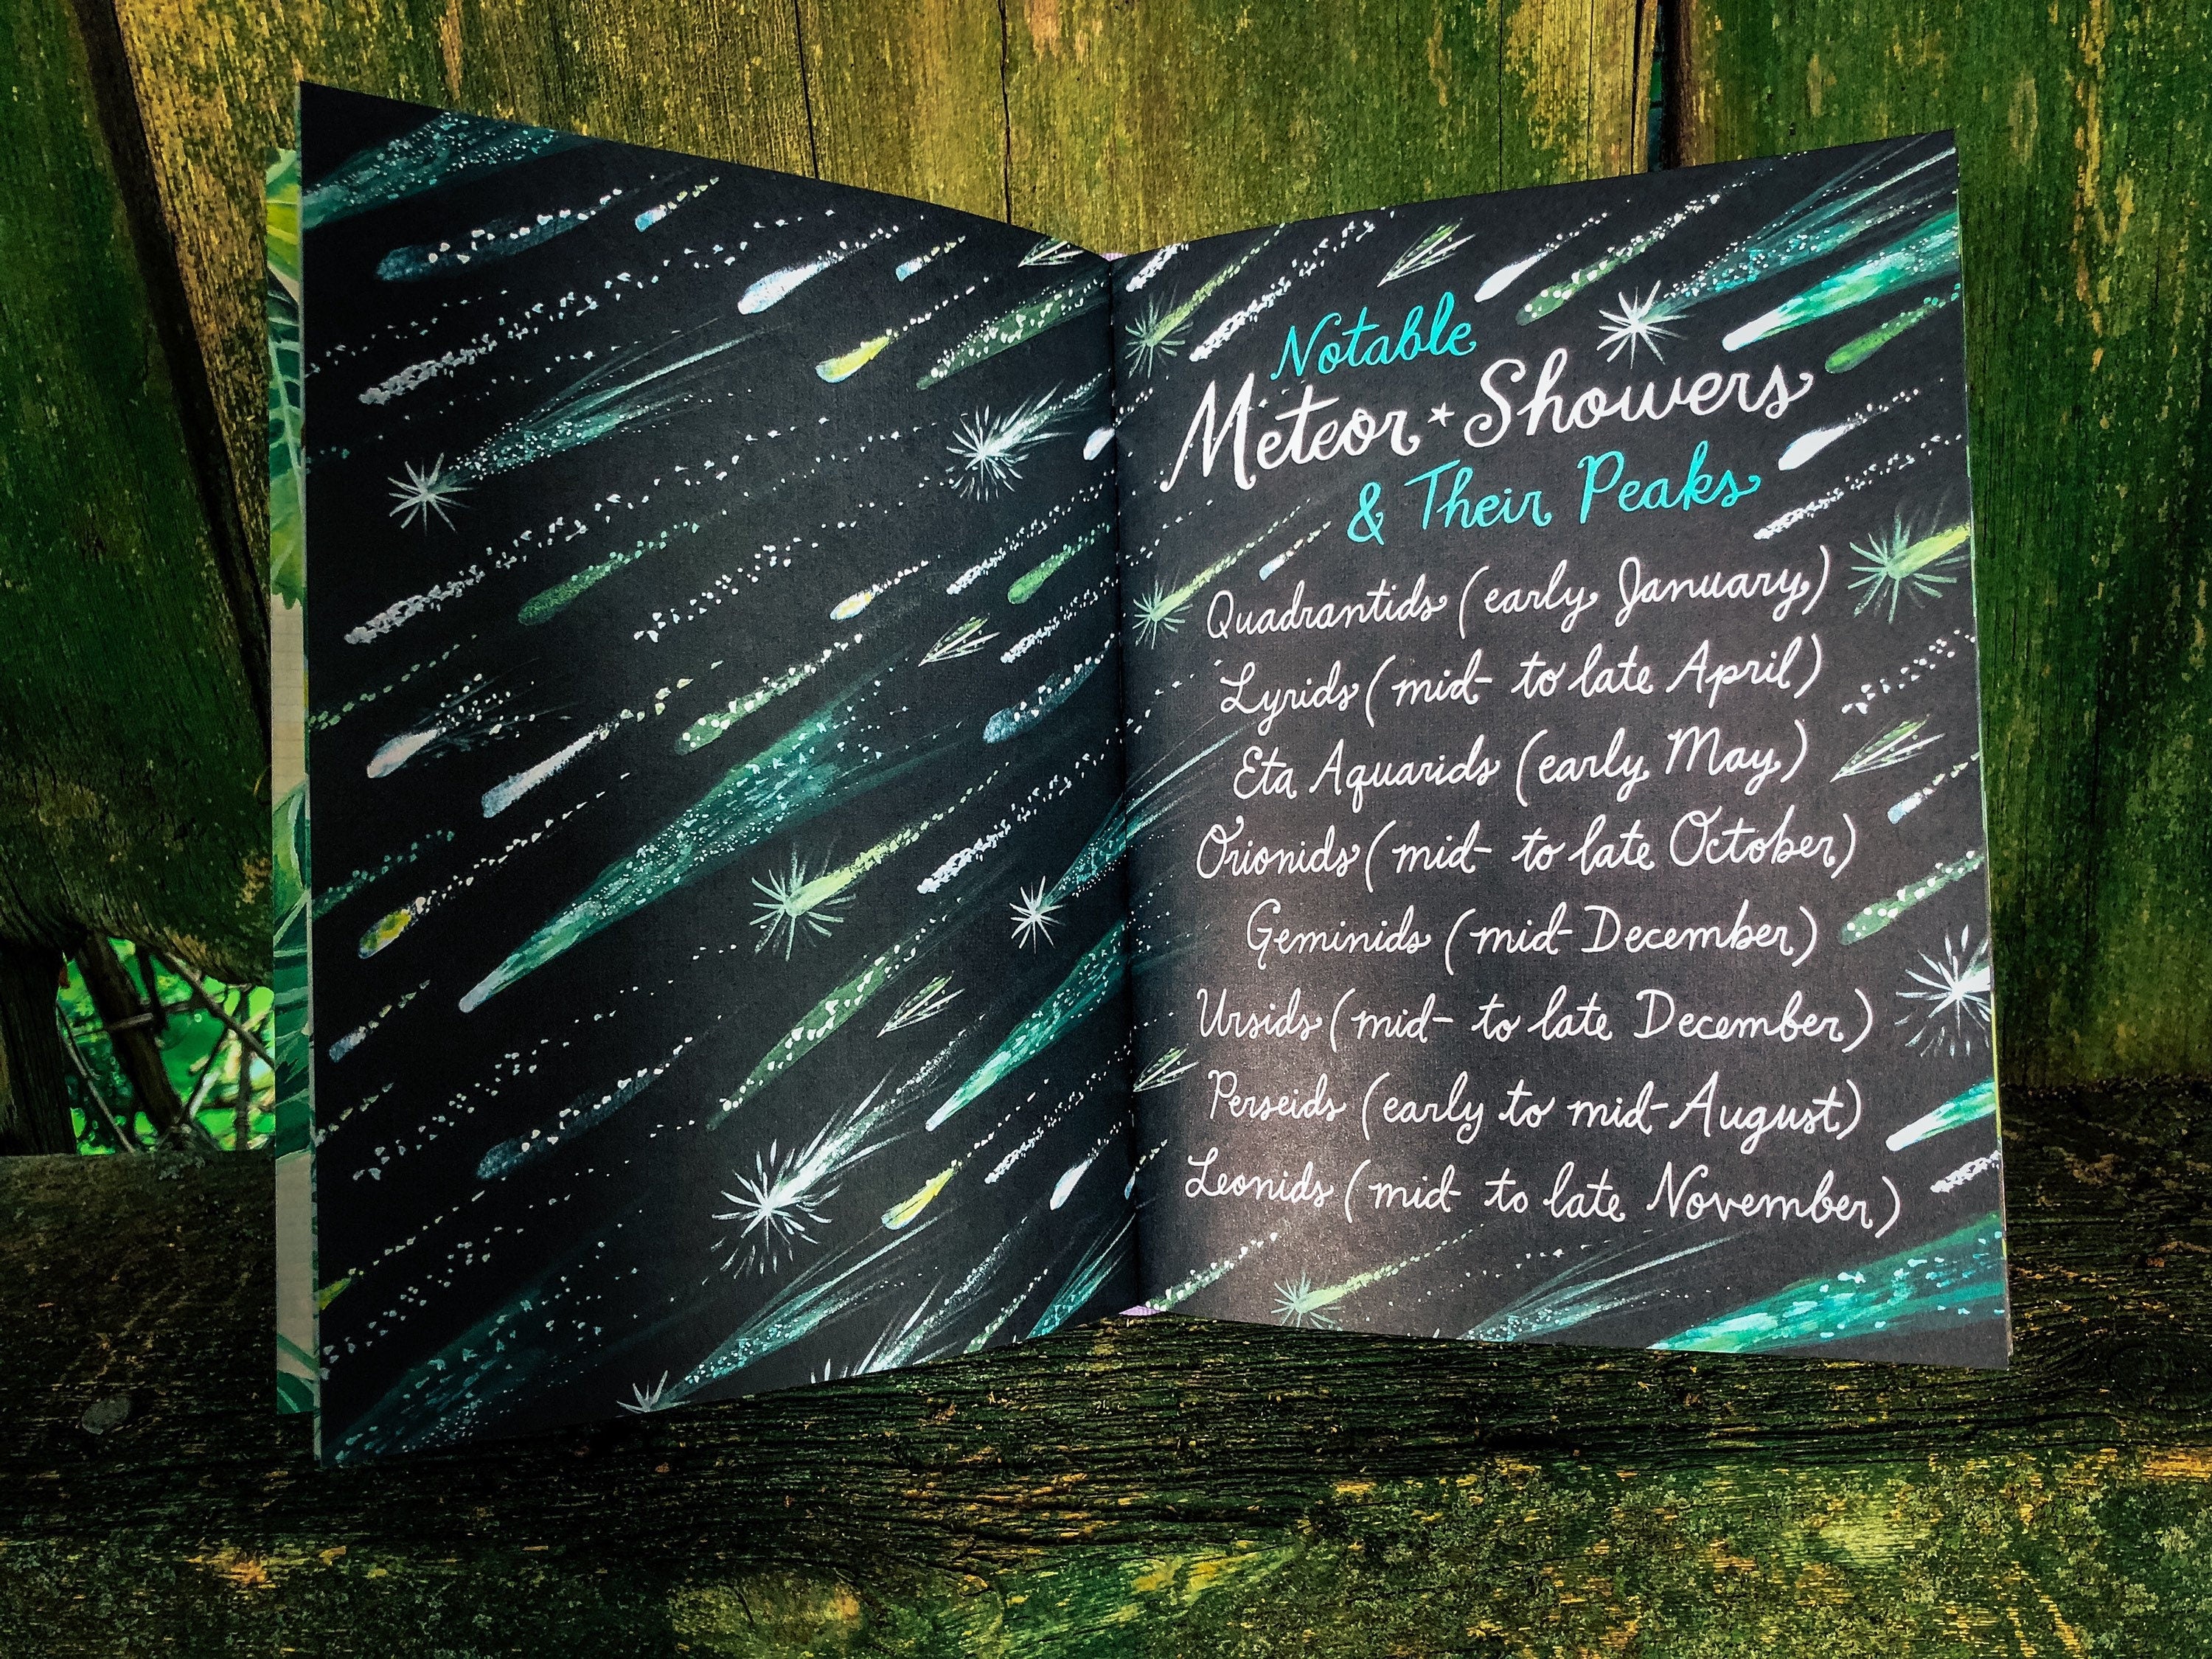 Notable
Meteor ★ Showers
& Their Peaks
Quadrantids (early January)
Lyrids (mid- to late April)
Eta Aquarids (early May)
Orionids (mid- to late October)
Geminids (mid-December)
Ursids (mid- to late December)
Perseids (early to mid-August)
Leonids (mid- to late November)